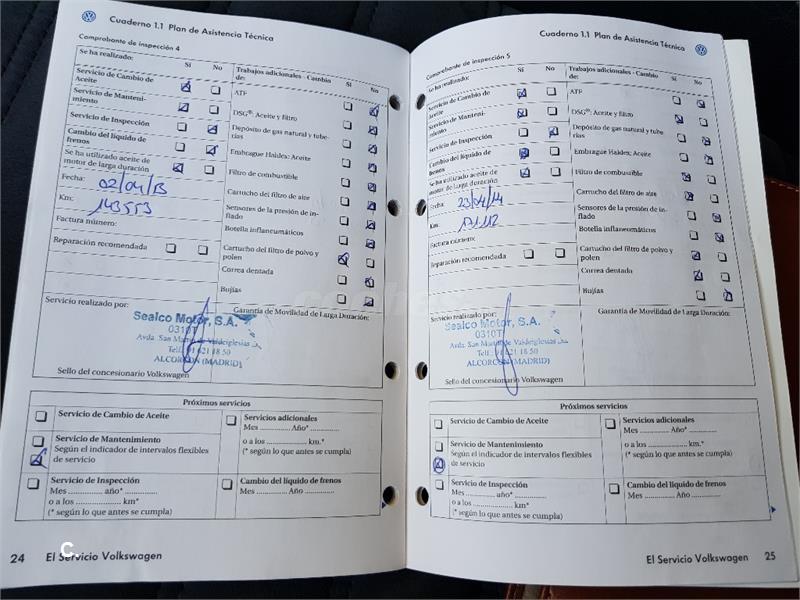 Cuaderno 1.1 Plan de Asistencia Técnica
Comprobante de inspección 4
Se ha realizado:
Sí
No
Servicio de Cambio de
Aceite
Servicio de Manteni-
miento
Servicio de Inspección
Cambio del líquido de
frenos
Se ha utilizado aceite de
motor de larga duración
Fecha:
02/04/13
Km:
143553
Factura número:
Reparación recomendada
Trabajos adicionales - Cambio
Sí
No
ATF
DSG®: Aceite y filtro
Depósito de gas natural y tube-
rías
Embrague Haldex: Aceite
Filtro de combustible
Cartucho del filtro de aire
Sensores de la presión de in-
flado
Botella inflaneumáticos
Cartucho del filtro de polvo y
polen
Correa dentada
Bujías
Servicio realizado por:
Garantía de Movilidad de Larga Duración:
Sealco Motor, S.A.
0310T
Avda. San Martín de Valdeiglesias
Telf. 91 621 18 50
ALCORCÓN (MADRID)
Sello del concesionario Volkswagen
Próximos servicios
Servicio de Cambio de Aceite
Servicio de Mantenimiento
Según el indicador de intervalos flexibles
de servicio
Servicio de Inspección
Mes ............. año* ...............
o a los .................... km*
(* según lo que antes se cumpla)
Servicios adicionales
Mes ............. Año* ...............
o a los .................... km.*
(* según lo que antes se cumpla)
Cambio del líquido de frenos
Mes ............. Año ...............
24
El Servicio Volkswagen
Cuaderno 1.1 Plan de Asistencia Técnica
Comprobante de inspección 5
Se ha realizado:
Sí
No
Servicio de Cambio de
Aceite
Servicio de Manteni-
miento
Servicio de Inspección
Cambio del líquido de
frenos
Se ha utilizado aceite de
motor de larga duración
Fecha:
23/04/14
Km:
171112
Factura número:
Reparación recomendada
Trabajos adicionales - Cambio
de:
Sí
No
ATF
DSG®: Aceite y filtro
Depósito de gas natural y tube-
rías
Embrague Haldex: Aceite
Filtro de combustible
Cartucho del filtro de aire
Sensores de la presión de in-
flado
Botella inflaneumáticos
Cartucho del filtro de polvo y
polen
Correa dentada
Bujías
Servicio realizado por:
Garantía de Movilidad de Larga Duración:
Sealco Motor, S.A.
0310T
Avda. San Martín de Valdeiglesias
Telf. 91 621 18 50
ALCORCÓN (MADRID)
Sello del concesionario Volkswagen
Próximos servicios
Servicio de Cambio de Aceite
Servicio de Mantenimiento
Según el indicador de intervalos flexibles
de servicio
Servicio de Inspección
Mes ............. año* ...............
o a los .................... km*
(* según lo que antes se cumpla)
Servicios adicionales
Mes ............. Año* ...............
o a los .................... km.*
(* según lo que antes se cumpla)
Cambio del líquido de frenos
Mes ............. Año ...............
El Servicio Volkswagen
25